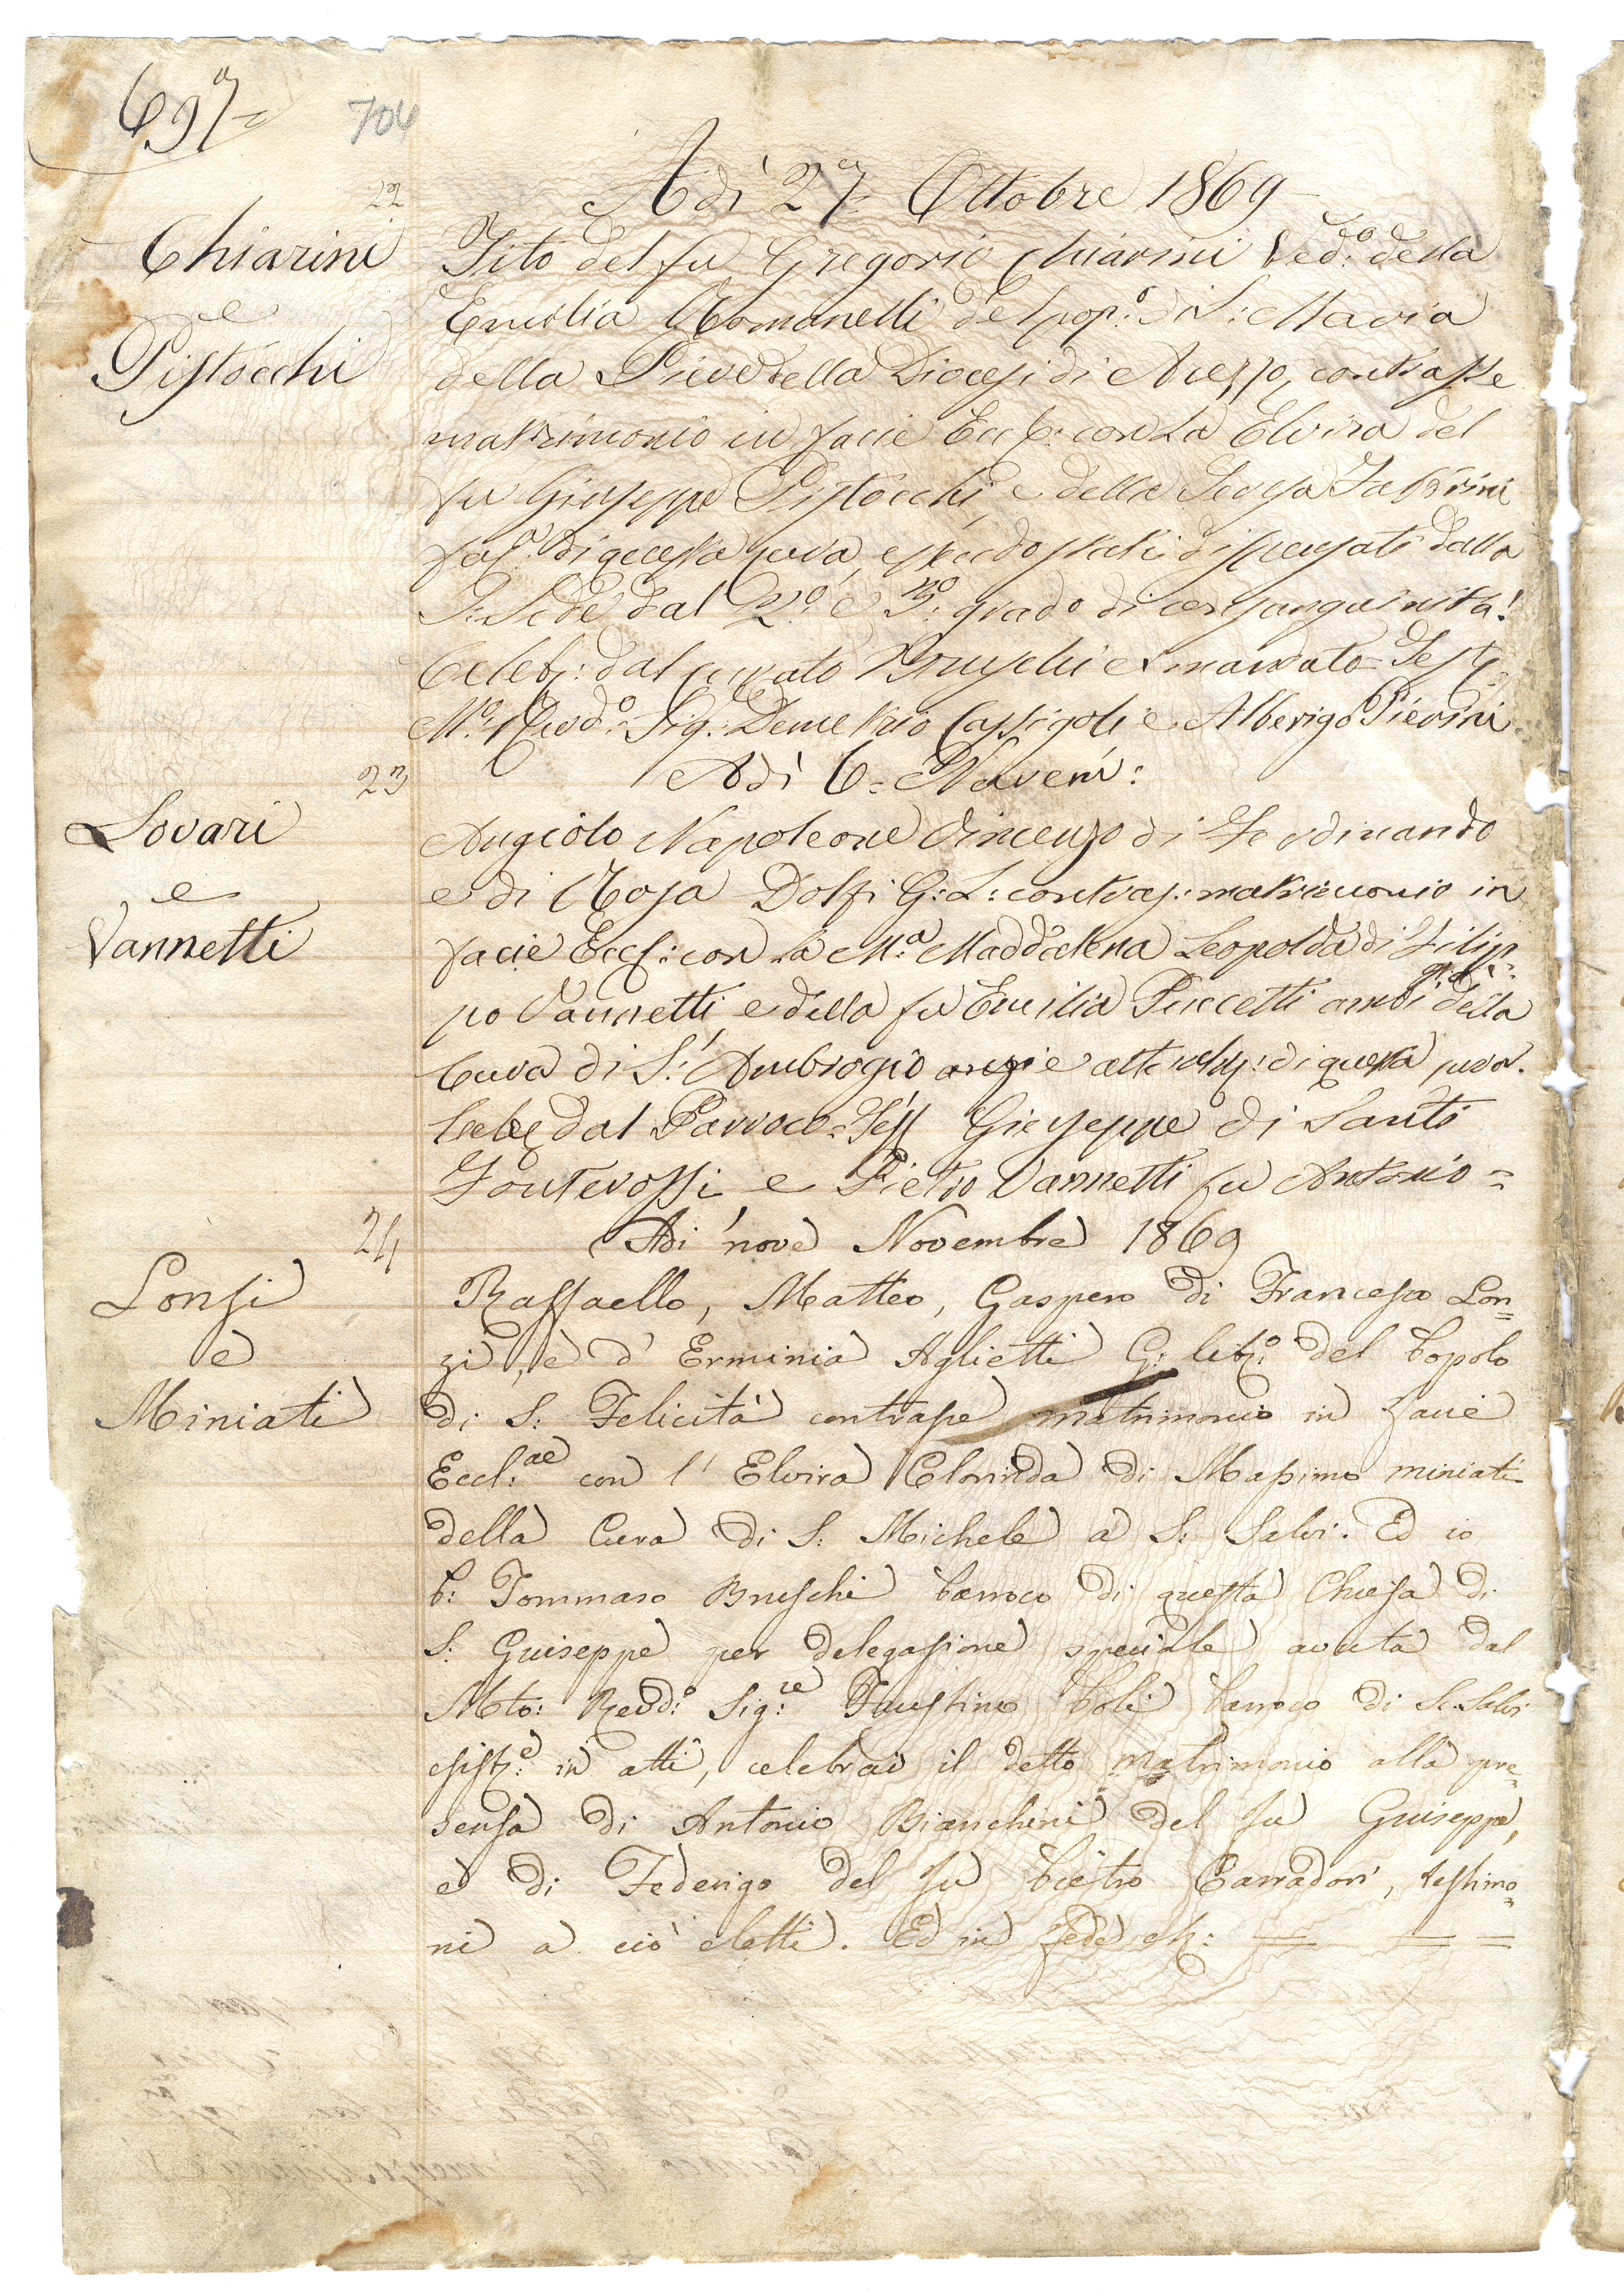 697
704
22
Adì 27 Ottobre 1869
Chiarini
e
Pistocchi
Tito del fu Gregorio Chiarini Ved:º della
Emilia Romanelli del pop:º di S: Maria
della Pieve della Diocesi di Arezzo, contrasse
matrimonio in facie Eccl: con la Elvira del
fu Giuseppe Pistocchi, e della Teresa
di questa cura, essendo stati dispensati dalla
S: Sede dal 2º: e 3º: grado di consanguinità:
Celeb: dal curato Bruschi e mandato = Test:
Mº: Revdº: Sig: Demetrio Cassigoli e Alberigo Pierini
23
Adì 6 = Novem:
Lovari
e
Vannetti
Angiolo Napoleone Vincenzo di Ferdinando
e di Rosa Dolfi G: L: contras: matrimonio in
facie Eccl: con la M:ª Maddalena Leopolda di Filip=
po Vannetti e della fu Emilia Puccetti ambi già della
Cura di S: Ambrogio anzi e di questa cura.
Celeb dal Parroco = Test Giuseppe di Santi
Fonterossi e Pietro Vannetti fu Antonio =
24
Adì nove Novembre 1869
Lonzi
e
Miniati
Raffaello, Matteo, Gaspero di Francesco Lon=
zi, e d' Erminia Aglietti G: libº: del Popolo
di S: Felicita contrasse matrimonio in facie
Eccl:ae con l' Elvira Clorinda di Massimo miniati
della Cura di S: Michele a S: Salvi. Ed io
P: Tommaso Bruschi Parroco di questa Chiesa di
S: Guiseppe per delegazione speciale avuta dal
Mto: Revdº: Sig:re Faustino Poli Parroco di S: Salvi
esist:e in atti, celebrai il detto matrimonio alla pre=
senza di Antonio Bianchini del fu Guiseppe,
e di Federigo del fu Pietro Carradori, testimo=
ni a ciò eletti. Ed in fede etc: = = =